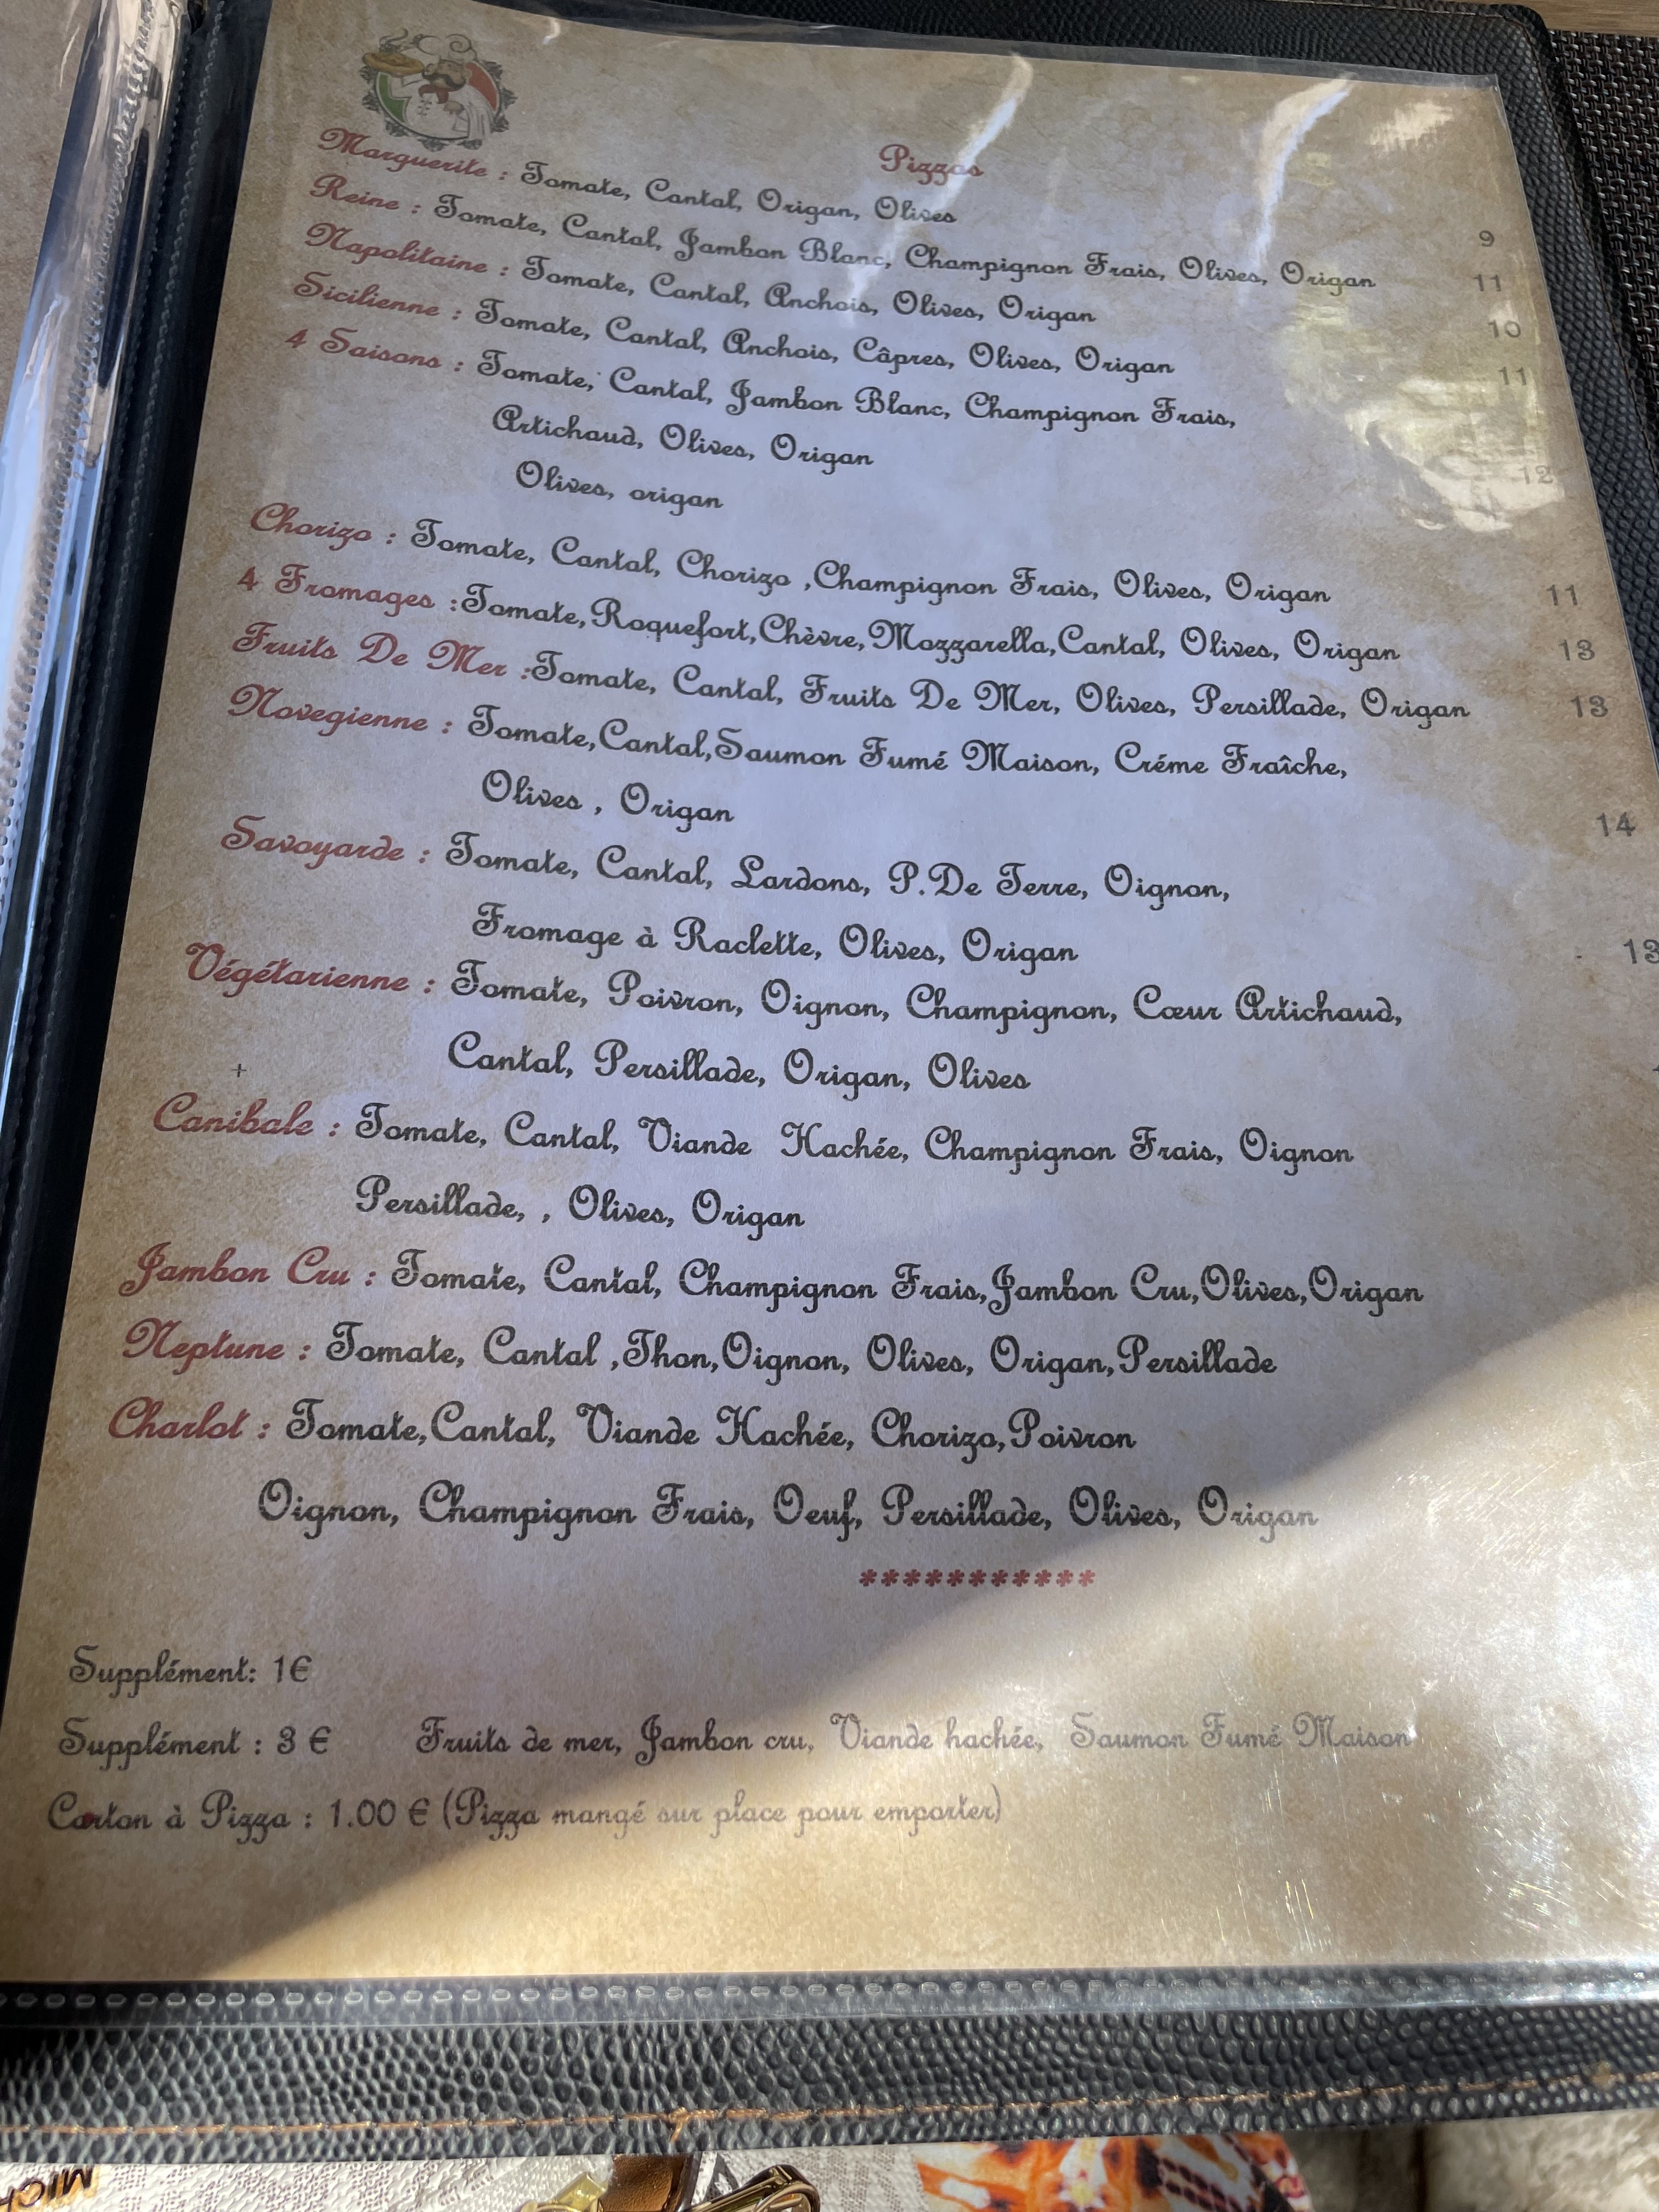 Pizzas
Marguerite : Tomate, Cantal, Origan, Olives 9
Reine : Tomate, Cantal, Jambon Blanc, Champignon Frais, Olives, Origan 11
Napolitaine : Tomate, Cantal, Anchois, Olives, Origan 10
Sicilienne : Tomate, Cantal, Anchois, Câpres, Olives, Origan 11
4 Saisons : Tomate, Cantal, Jambon Blanc, Champignon Frais,
Artichaud, Olives, Origan 12
Olives, origan
Chorizo : Tomate, Cantal, Chorizo ,Champignon Frais, Olives, Origan 11
4 Fromages :Tomate,Roquefort,Chèvre,Mozzarella,Cantal, Olives, Origan 13
Fruits De Mer :Tomate, Cantal, Fruits De Mer, Olives, Persillade, Origan 13
Novegienne : Tomate,Cantal,Saumon Fumé Maison, Créme Fraîche,
Olives , Origan 14
Savoyarde : Tomate, Cantal, Lardons, P.De Terre, Oignon,
Fromage à Raclette, Olives, Origan 13
Végétarienne : Tomate, Poivron, Oignon, Champignon, Cœur Artichaud,
Cantal, Persillade, Origan, Olives
Canibale : Tomate, Cantal, Viande Hachée, Champignon Frais, Oignon
Persillade, , Olives, Origan
Jambon Cru : Tomate, Cantal, Champignon Frais,Jambon Cru,Olives,Origan
Neptune : Tomate, Cantal ,Thon,Oignon, Olives, Origan,Persillade
Charlot : Tomate,Cantal, Viande Hachée, Chorizo,Poivron
Oignon, Champignon Frais, Oeuf, Persillade, Olives, Origan
***********
Supplément: 1€
Supplément : 3 € Fruits de mer, Jambon cru, Viande hachée, Saumon Fumé Maison
Carton à Pizza : 1.00 € (Pizza mangé sur place pour emporter)